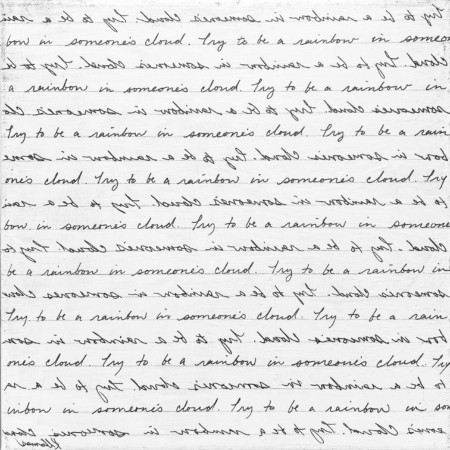 Try to be a rainbow in someone's cloud. Try to be a rai
bow in someone's cloud. Try to be a rainbow in someo
cloud. Try to be a rainbow in someone's cloud. Try to b
a rainbow in someone's cloud. Try to be a rainbow in
someone's cloud. Try to be a rainbow in someone's clo
Try to be a rainbow in someone's cloud. Try to be a rain
bow in someone's cloud. Try to be a rainbow in some
one's cloud. Try to be a rainbow in someone's cloud. Try
to be a rainbow in someone's cloud. Try to be a rai
bow in someone's cloud. Try to be a rainbow in someone
cloud. Try to be a rainbow in someone's cloud. Try to
be a rainbow in someone's cloud. Try to be a rainbow in
someone's cloud. Try to be a rainbow in someone's clou
Try to be a rainbow in someone's cloud. Try to be a rain
bow in someone's cloud. Try to be a rainbow in som
one's cloud. Try to be a rainbow in someone's cloud. Try
to be a rainbow in someone's cloud. Try to be a ra
inbow in someone's cloud. Try to be a rainbow in som
eone's cloud. Try to be a rainbow in someone's cloud